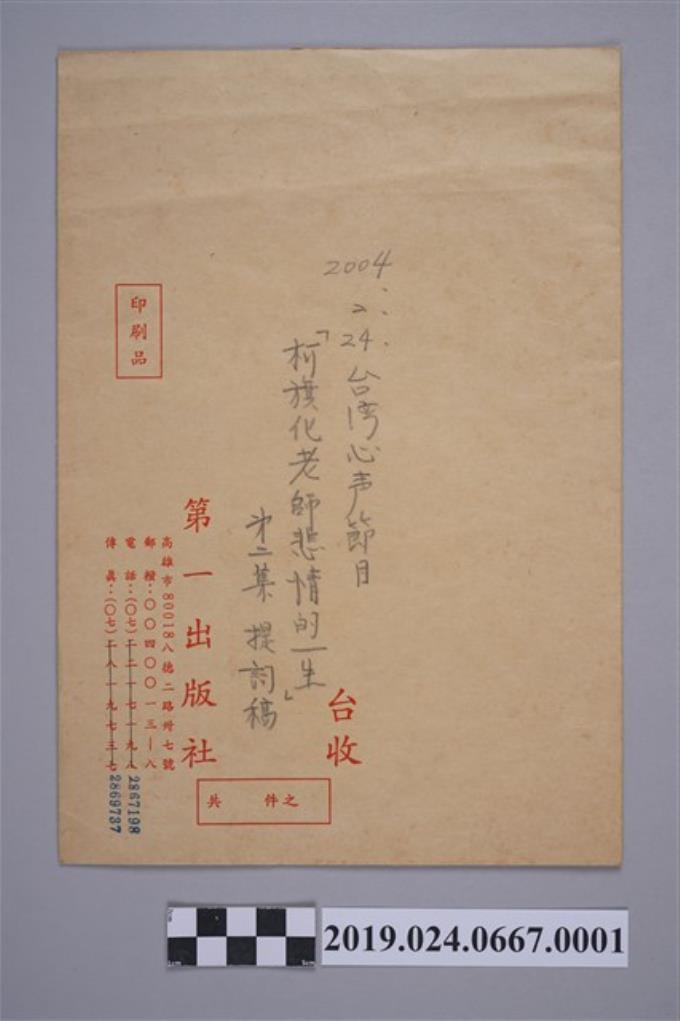 2004.
2.
24.台湾心声節目
「柯旗化老師悲情的一生」
第二集 提詞稿
台收
共 件之
印刷品
第一出版社
高雄市80018八德二路卅七號
郵撥：〇〇四〇〇一三—八
電話：(〇七)二一七一九八
2867198
傳真：(〇七)二八一九七三七
2869737
2019.024.0667.0001